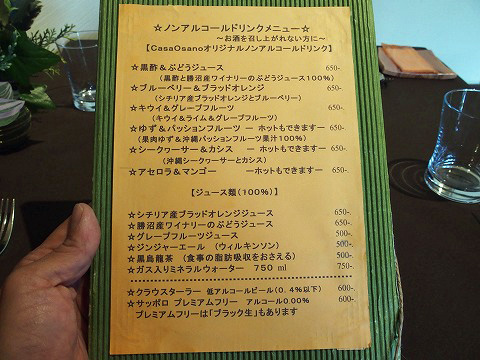 ☆ノンアルコールドリンクメニュー☆
～お酒を召し上がれない方に～
【CasaOsanoオリジナルノンアルコールドリンク】
☆黒酢＆ぶどうジュース 650-.
（黒酢と勝沼産ワイナリーのぶどうジュース100％）
☆ブルーベリー＆ブラッドオレンジ 650-.
（シチリア産ブラッドオレンジとブルーベリー）
☆キウイ＆グレープフルーツ 650-.
（キウイ＆ライム＆グレープフルーツ）
☆ゆず＆パッションフルーツ －ホットもできます－ 650-.
（果肉ゆず＆沖縄パッションフルーツ果汁100％）
☆シークヮーサー＆カシス －ホットもできます－ 650-.
（沖縄シークヮーサーとカシス）
☆アセロラ＆マンゴー －ホットもできます－ 650-.
【ジュース類（100％）】
☆シチリア産ブラッドオレンジジュース 650-.
☆勝沼産ワイナリーのぶどうジュース 650-.
☆グレープフルーツジュース 500-.
☆ジンジャーエール （ウィルキンソン） 500-.
☆黒烏龍茶 （食事の脂肪吸収をおさえる） 500-.
☆ガス入りミネラルウォーター 750 ml 750-.
☆クラウスターラー 低アルコールビール（0．4％以下） 600-.
☆サッポロ プレミアムフリー アルコール0.00％ 600-.
プレミアムフリーは「ブラック生」もあります